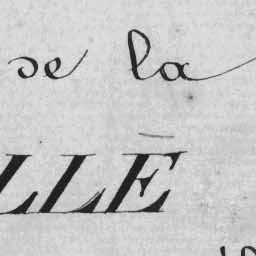 de la
LLE